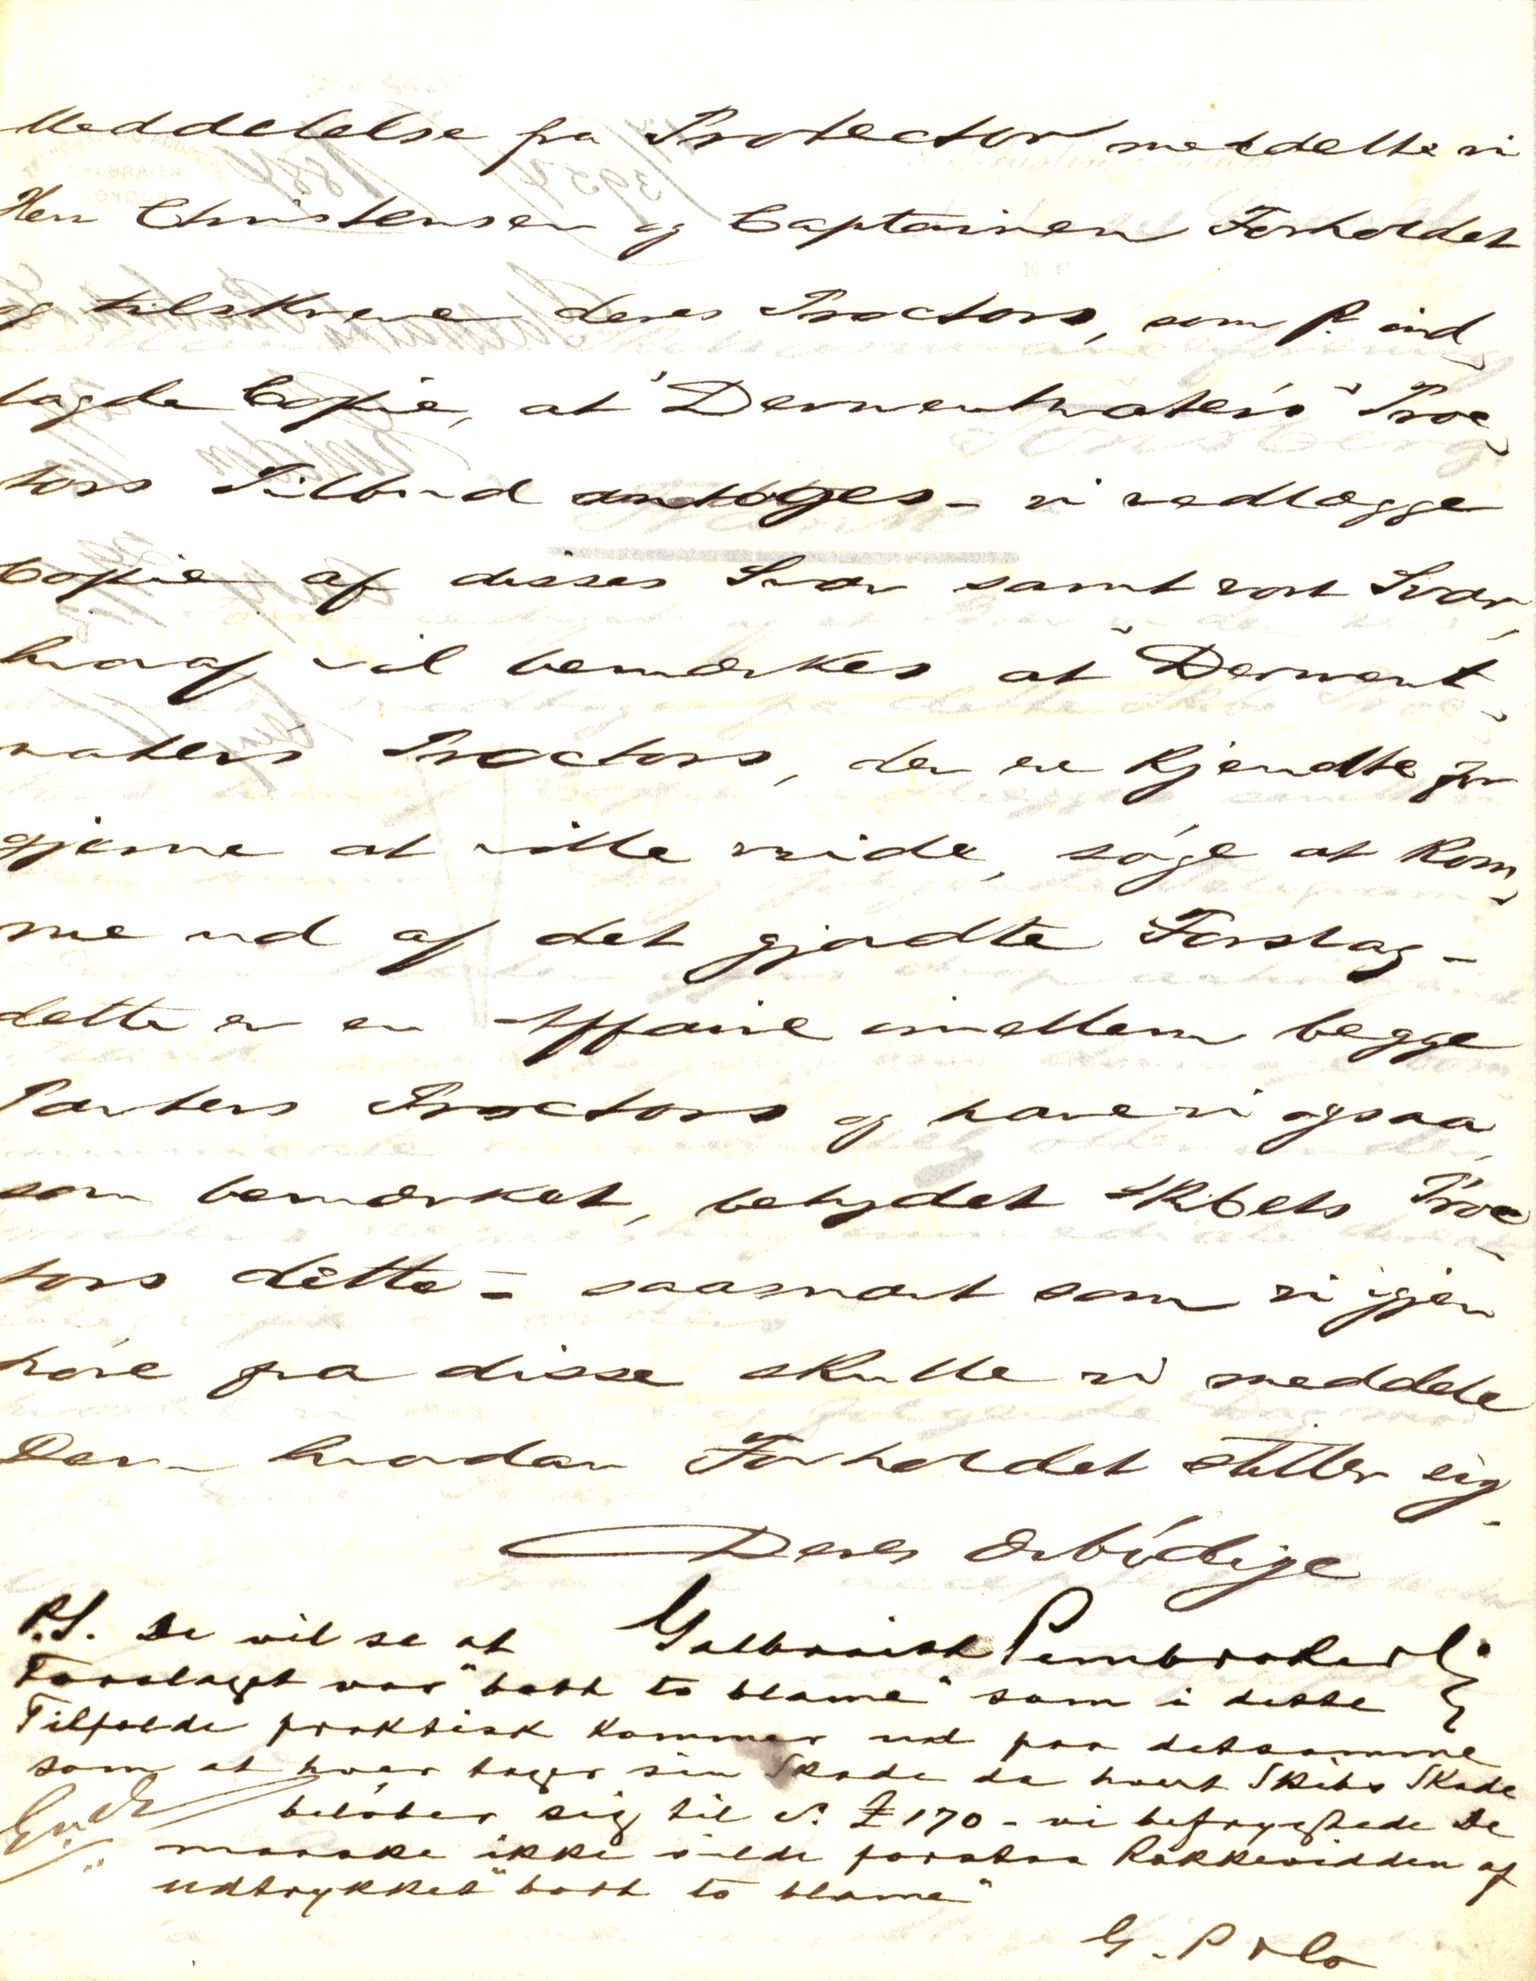 Meddelelse fra Protector meddelte vi
Herr Christensen og Captainen Forholdet
og tilskreve deres Proctors, som pr. ind-
lagde Copie, at "Derwentwater's" Proc-
tors Tilbud antoges - vi vedlægge
Copie af disses Svar samt vort Svar,
hvoraf vil bemærkes at "Derwent-
water's Proctors, der er kjendte for
gjerne at ville vride, søge at kom-
me ud af det gjordte Forslag -
dette er en Affaire imellem begge
Parters Proctors og have vi ogsaa,
som bemærket, betydet Skibets Proc-
tors dette - saasnart som vi igjen
høre fra disse skulle vi meddele
Dem hvordan Forholdet stiller sig -
Deres ærbødige
Galbraith Pembroke & Co
P.S. De vil se at
Forslaget var "both to blame" som i dette
Tilfælde praktisk kommer ud paa detsamme
som at hver tager sin Skade da hvert Skibs Skade
beløber sig til c. £170 - vi befrygtede De
maaske ikke vilde forstaa Rækkevidden af
udtrykket "both to blame"
G. P & Co